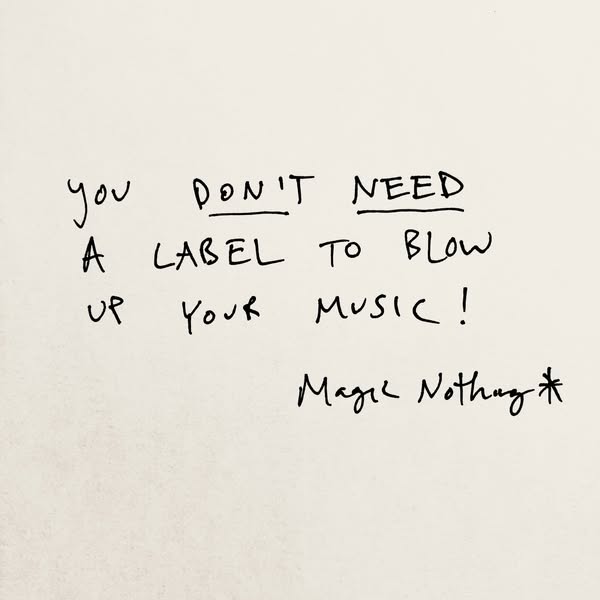 you DON'T NEED
A LABEL TO BLOW
UP YOUR MUSIC!
Magic Nothing*